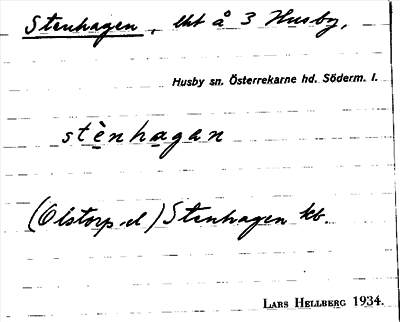 Stenhagen, lht å 3 Husby,
Husby sn. Österrekarne hd. Söderm. l.
stènhagan
(Olstorp el) Stenhagen kb.
Lars Hellberg 1934.